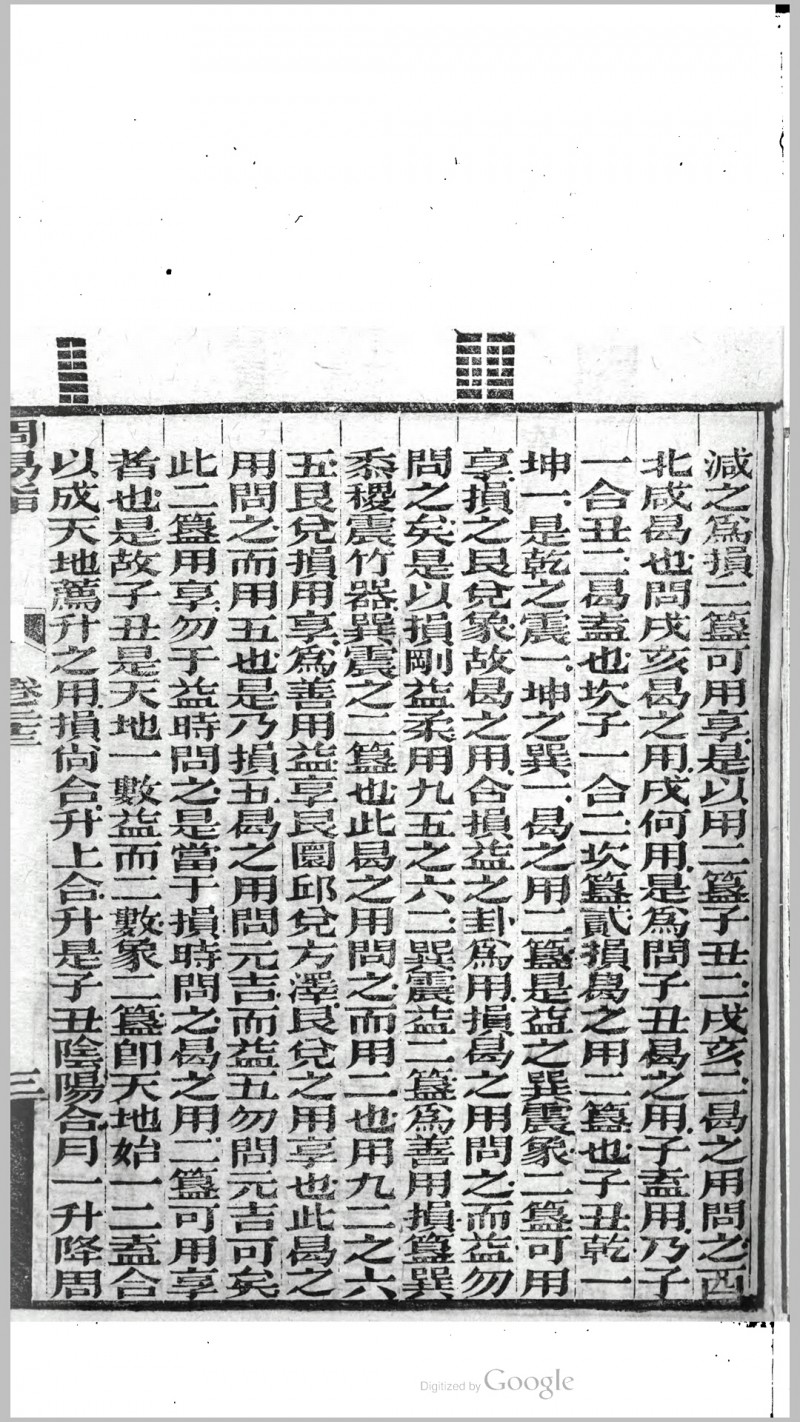 減之爲損二簋可用享是以用二簋子丑二戌亥二曷之用問之西
北咸曷也問戌亥曷之用戌何用是爲問子丑曷之用子盍用乃子
一合丑二曷盍也坎子一合二坎簋貳損曷之用二簋也子丑乾一
坤一是乾之震一坤之巽一曷之用二簋是益之巽震象二簋可用
享損之艮兌象故曷之用合損益之卦爲用損曷之用問之而益勿
問之矣是以損剛益柔用九五之六二巽震益二簋爲善用損簋巽
黍稷震竹器巽震之二簋也此曷之用問之而用二也用九二之六
五艮兌損用享爲善用益享艮圜邱兌方澤艮兌之用享也此曷之
用問之而用五也是乃損五曷之用問元吉而益五勿問元吉可矣
此二簋用享勿于益時問之是當于損時問之曷之用二簋可用享
者也是故子丑是天地一數益而二數象二簋卽天地始一二盍合
以成天地薦升之用損尙合升上合升是子丑陰陽合月一升降周
周易旨
卷三
三
Digitized by Google